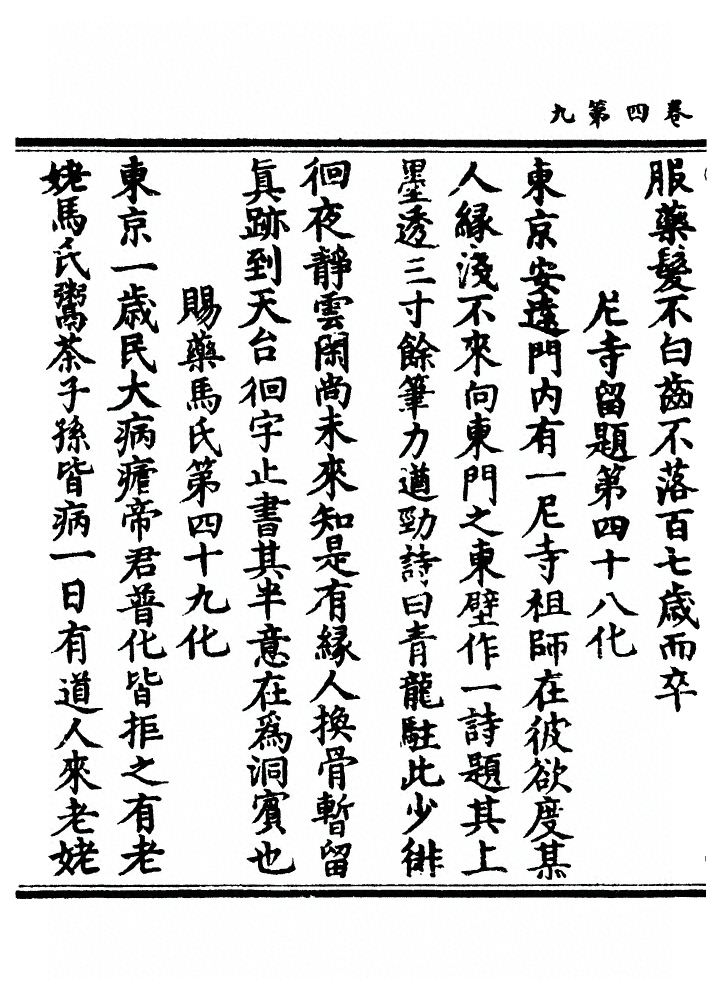 卷四第九
服藥髮不白齒不落百七歲而卒
尼寺留題第四十八化
東京安遠門内有一尼寺祖師在彼欲度其
人緣淺不來向東門之東壁作一詩題其上
墨透三寸餘筆力遒勁詩曰青龍駐此少徘
徊夜靜雲閑尚未來知是有緣人換骨暫留
眞跡到天台徊字止書其半意在爲洞賓也
賜藥馬氏第四十九化
東京一歲民大病瘧帝君普化皆拒之有老
姥馬氏鬻茶子孫皆病一日有道人來老姥